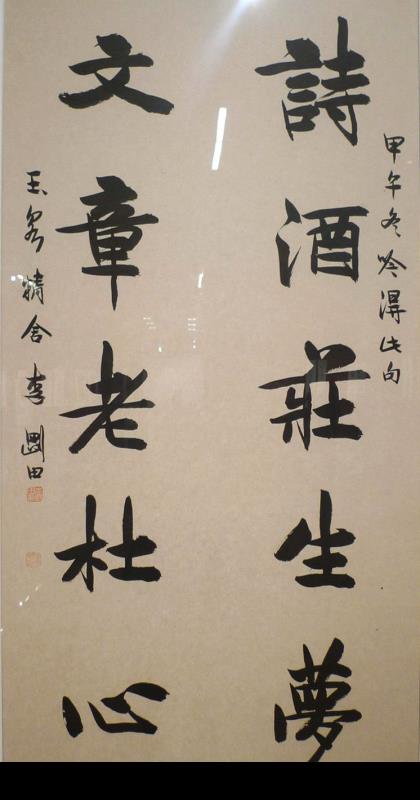 甲午冬吟得此句
詩酒莊生夢
文章老杜心
精舍李剛田